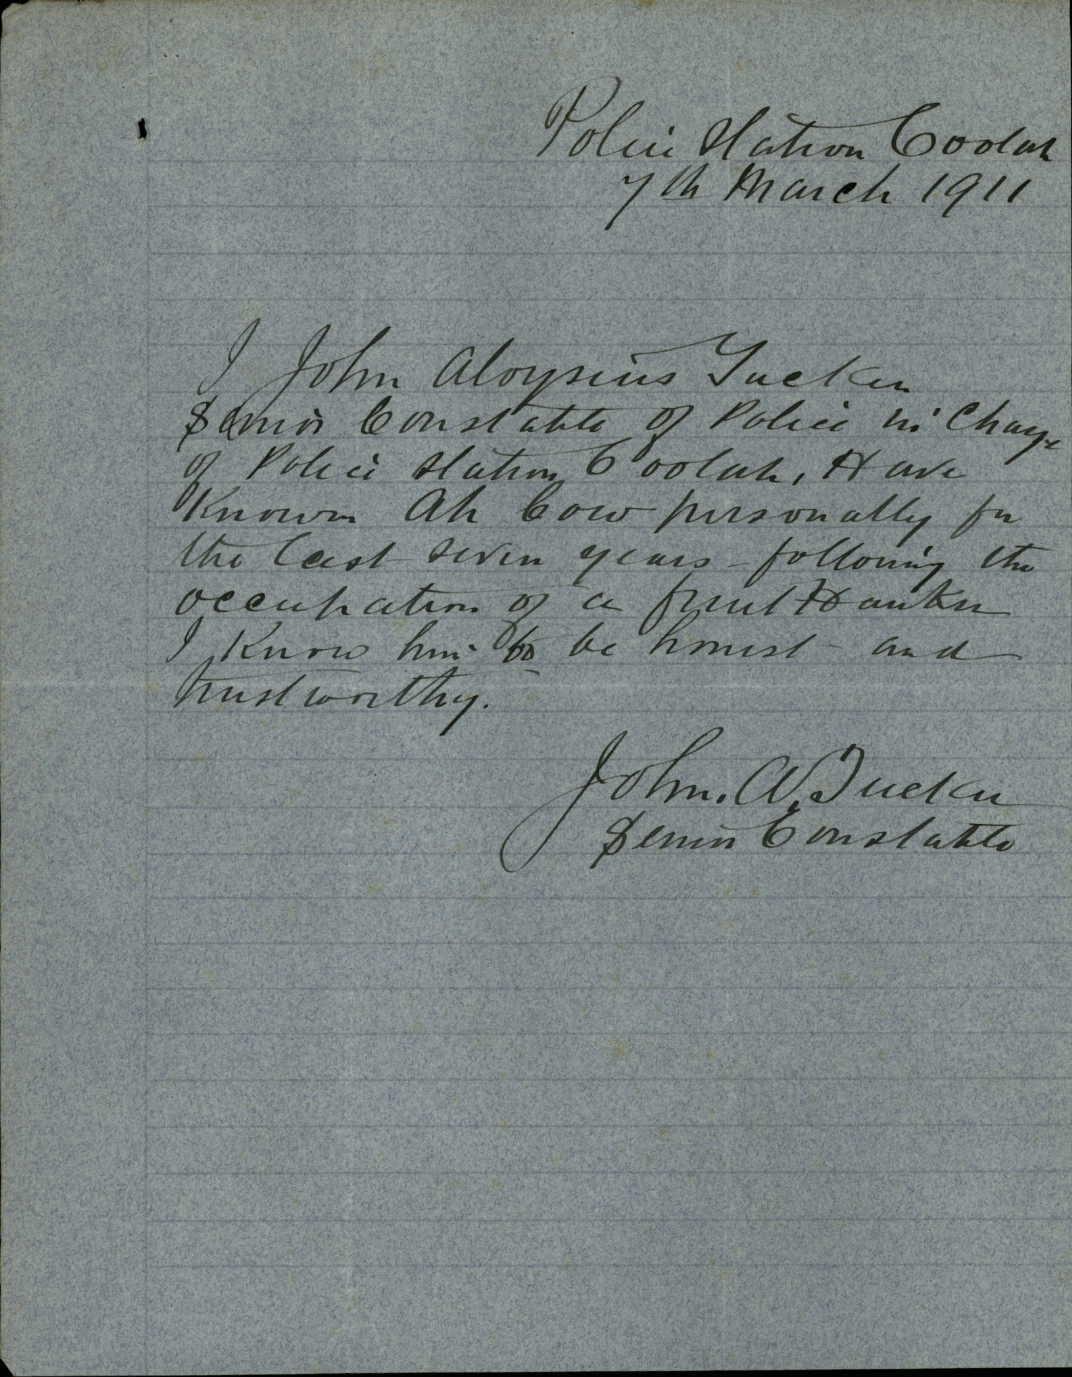 Police Station Coolah
7th March 1911
I John Aloysius Tucker
Senior Constable of Police in Charge
of Police Station Coolah, Have
Known Ah Cow personally for
the last seven years following the
occupation of a fruit Hawker
I Know him to be honest and
trustworthy.
John. A. Tucker
Senior Constable